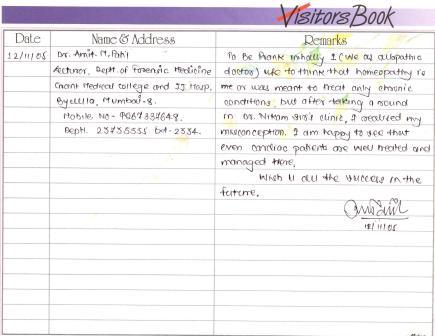 Visitors Book
Date Name & Address Remarks
12/11/05 Dr. Amit M. Patil
Lecturer, Dept of Forensic Medicine
Grant Medical college and JJ Hosp,
Byculla, Mumbai-8.
Mobile No-
Deptt. 23735555 Ext-2334.
To Be Frank initially I (We as allopathic
doctor) use to think that homeopathy is
me or was meant to treat only chronic
conditions, but after taking a round
in Dr. Nikam sir's clinic, I realized my
misconception. I am happy to see that
even cardiac patients are well treated and
managed Here.
Wish U all the success in the
future.
12/11/05